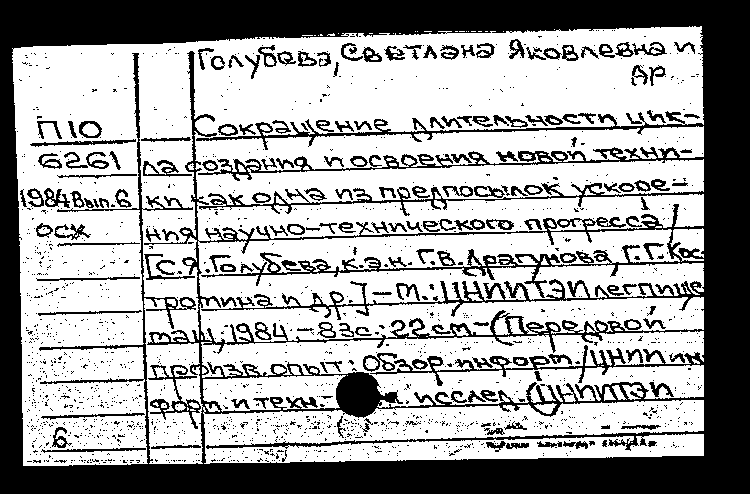 Голубева, Светлана Яковлевна и
др
П10 Сокращение длительности цик-
6261 ла создания и освоения новой техни-
1984 Вып. 6 ки как одна из предпосылок ускоре-
осх ния научно-технического прогресса /
[С.Я. Голубева, к.э.н. Г.В. Драгунова, Г.Г. Кос-
тромина и др.]. - М.: ЦНИИТЭИлегпище
маш, 1984. - 83с.; 22см. - (Передовой
произв. опыт: Обзор. информ. / ЦНИИ ин
форм. и техн.- исслед. (ЦНИИТЭИ
6